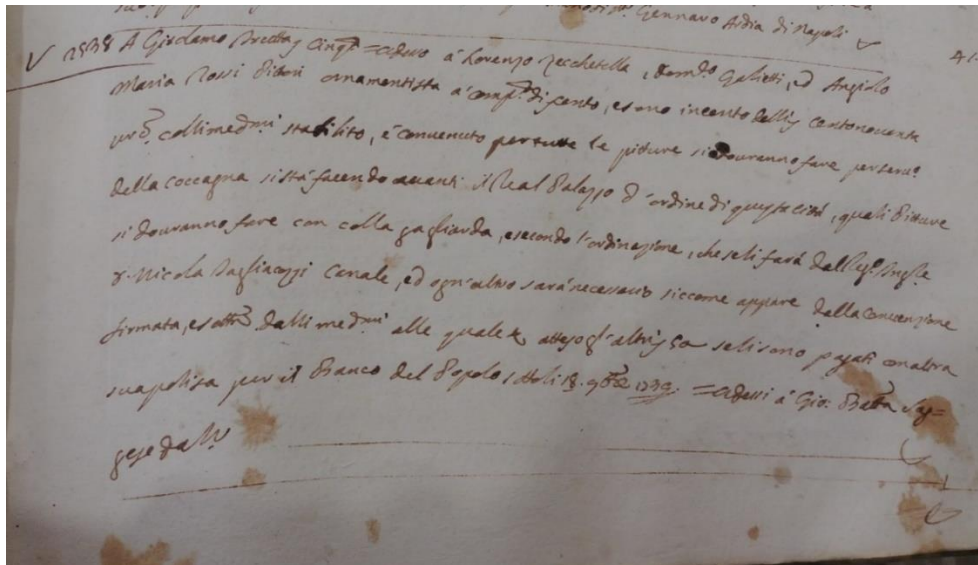 Gennaro Ardia di Napoli
2838 A Girolamo cinqt.e = adesso á Lorenzo Zecchetella, Dom.co Galietti, ed Angiolo
Maria Rossi Pittori ornamentista á comp.to di cento, e sono in conto delli centonovanta
collimedmi stabilito, é convenuto per tutte le pitture si douranno fare per seru.o
della Coccagna si stá facendo avanti il Real Palazzo d'ordine di questa città, quali Pitture
si douranno fare con colla gagliarda, e secondo l'ordinazione, che seli fará dal Reg.o Ing.re
Nicola Tagliacozzi Canale, ed ogn'altro sará necessario siccome appare dalla convenzione
firmata, e sottta dalli medmi alle quale atteso gl'altri 50 seli sono pagati con altra
sua polisa per il Banco del Popolo sottoli 18. 9bre 1739. = adessi á Gio: Batta Sag=
gese